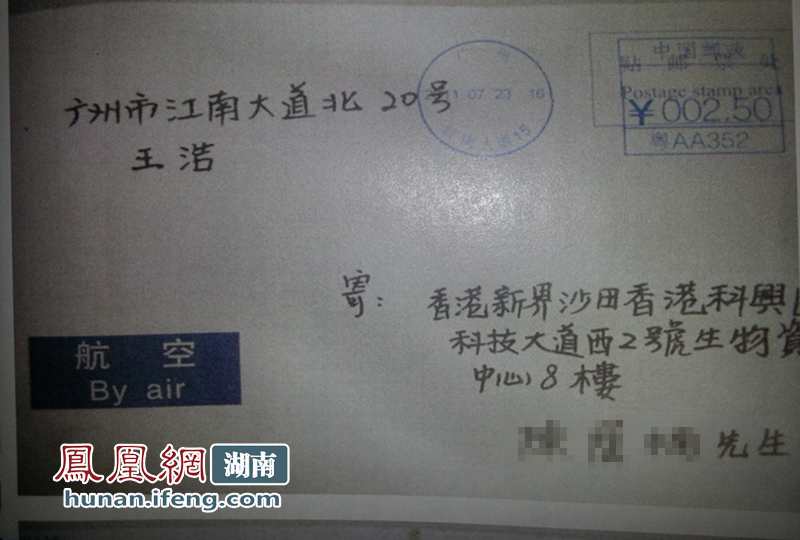 广州市江南大道北 20号
王浩
07 23 16
15
中国邮政
贴 邮 票 处
Postage stamp area
¥ 002.50
粤AA352
寄:
香港新界沙田香港科興
科技大道西2號生物資
中心8樓
先生
航 空
By air
鳳凰網 湖南
hunan.ifeng.com